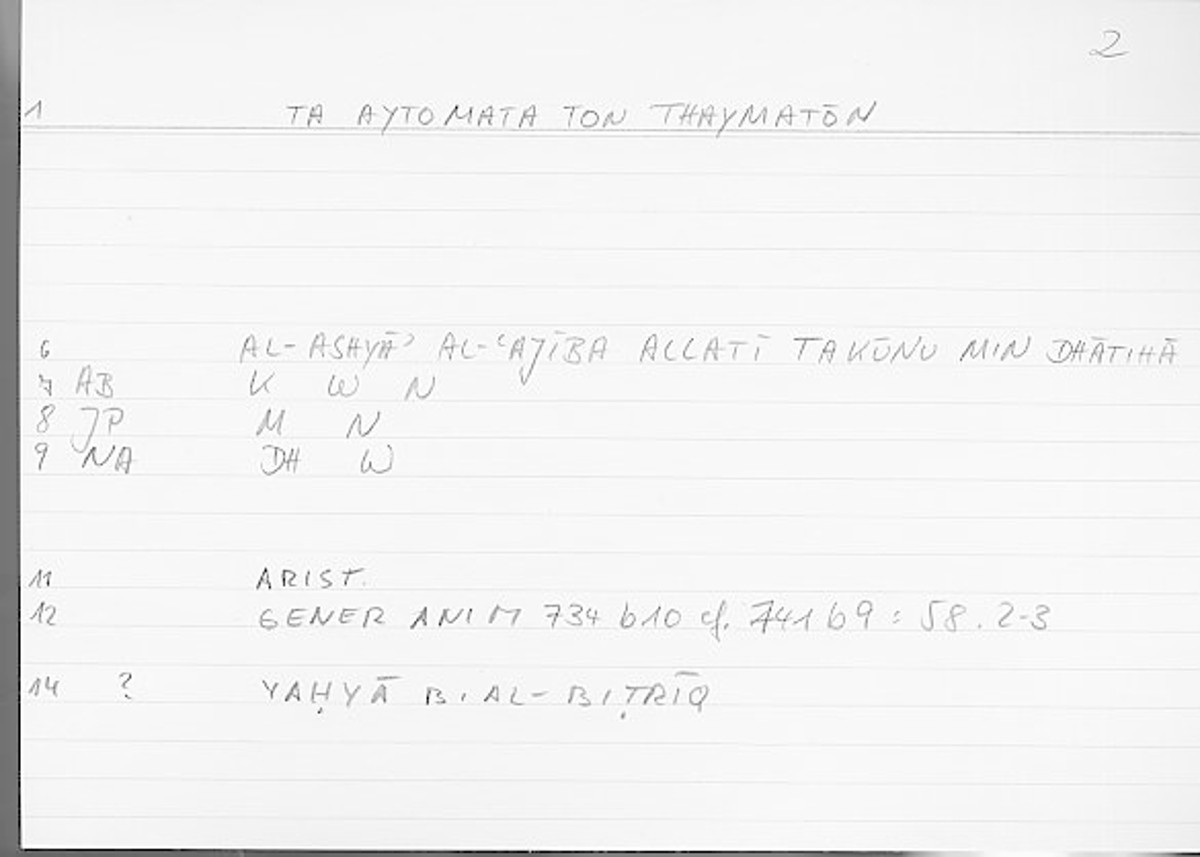 2
1 TA AYTOMATA TON THAYMATŌN
6 AL-ASHYĀʾ AL-ʿAJĪBA ALLATĪ TAKŪNU MIN DHĀTIHĀ
7 AB K W N
8 JP M N
9 NA DH W
11 ARIST.
12 GENER ANIM 734 b10 cf. 741b9 : 58.2-3
14 ? YAḤYĀ B. AL-BIṬRĪQ